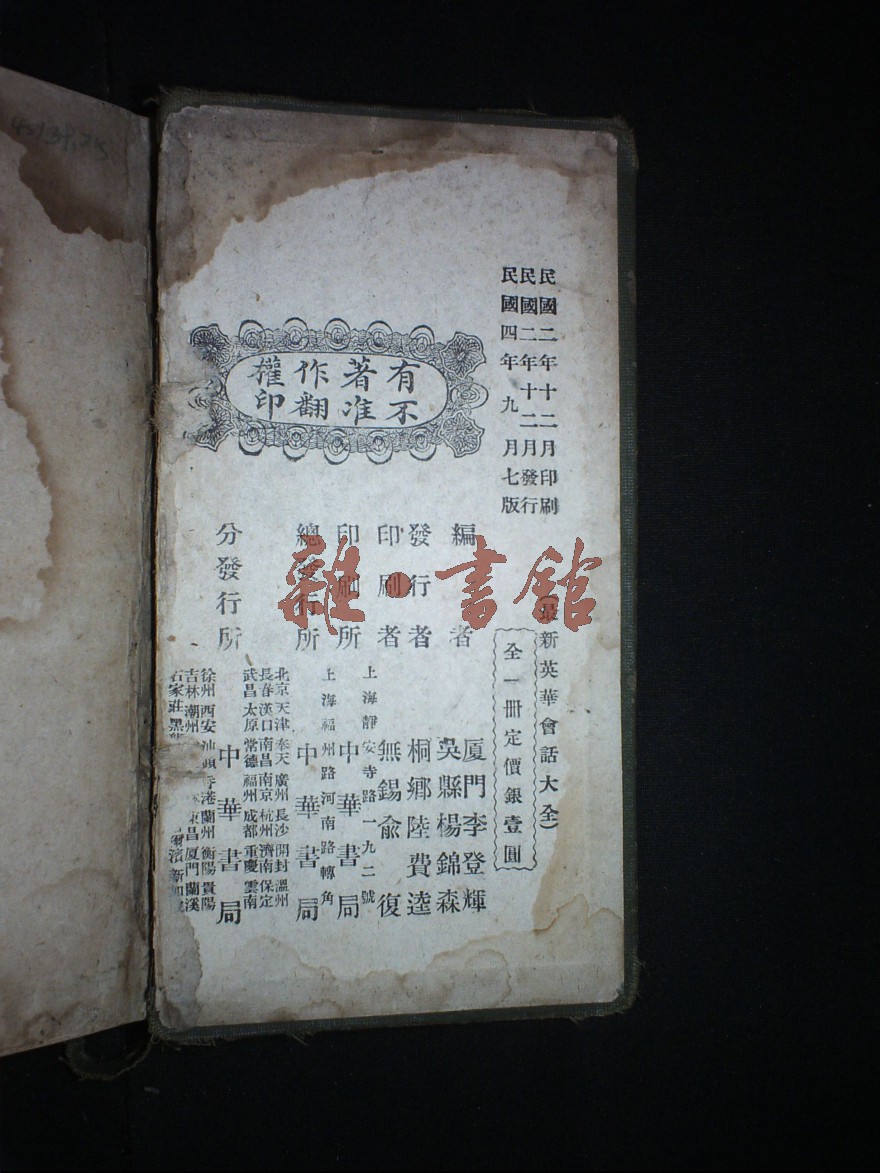 民國二年十二月印刷
民國二年十二月發行
民國四年九月七版
(最新英華會話大全)
全一冊定價銀壹圓
有著作權
不准翻印
編者
廈門李登輝
吳縣楊錦森
發行者
桐鄉陸費逵
印刷者
無錫俞復
印刷所
上海靜安寺路一九二號
中華書局
總發行所
上海福州路河南路轉角
中華書局
分發行所
北京天津奉天廣州長沙開封溫州
長春漢口南昌南京杭州濟南保定
武昌太原常德福州成都重慶雲南
中華書局
徐州西安汕頭香港蘭州衡陽貴陽
吉林潮州 東昌廈門蘭溪
石家莊黑 爾濱新加
雜·書館